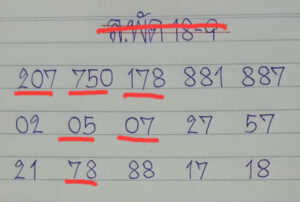 ส.พัด 18-9
207 750 178 881 887
02 05 07 27 57
21 78 88 17 18